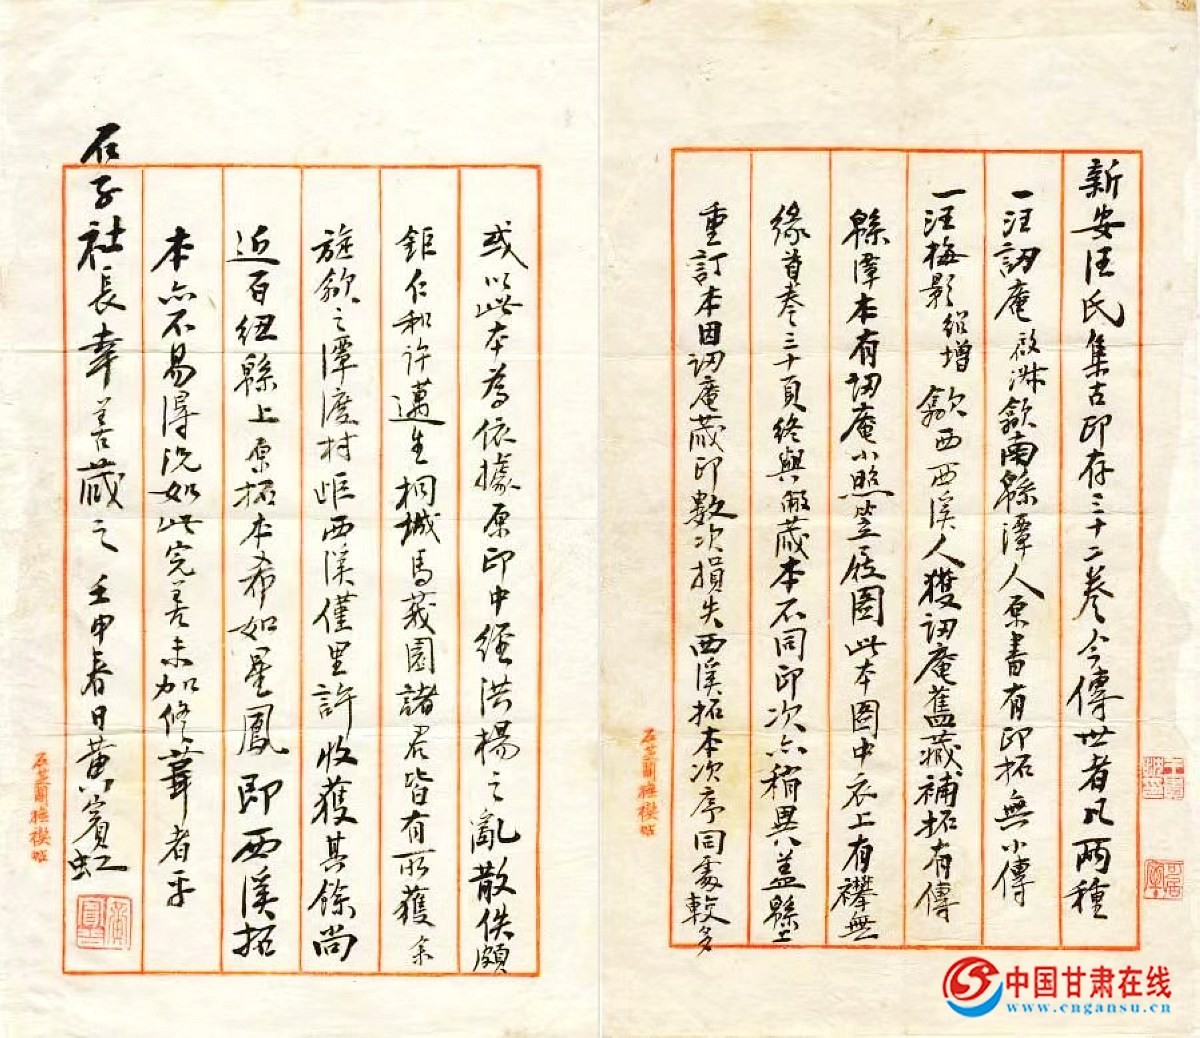 新安汪氏集古印存三十二卷今傳世者凡兩種
一汪訒庵啟淑歙南緜潭人原書有印拓無小傳
一汪梅影紹增歙西西溪人獲訒庵舊藏補拓有傳
緜潭本有訒庵小照笠屐圖此本圖中衣上有襻無
緣首卷三十頁終與敝藏本不同印次亦稍異盖緜上
重訂本因訒庵藏印數次損失西溪拓本次序同處較多
或以此本為依據原印中經洪楊之亂散佚頗
鉅仁和許邁生桐城馬莪園諸君皆有所獲余
旋歙之潭渡村岠西溪僅里許收獲其餘尚
近百紐緜上原拓本希如星鳳即西溪拓
本亦不易得況如此完善未加修葺者乎
石子社長幸善藏之 壬申春日黄賓虹
中国甘肃在线
www.cngansu.cn